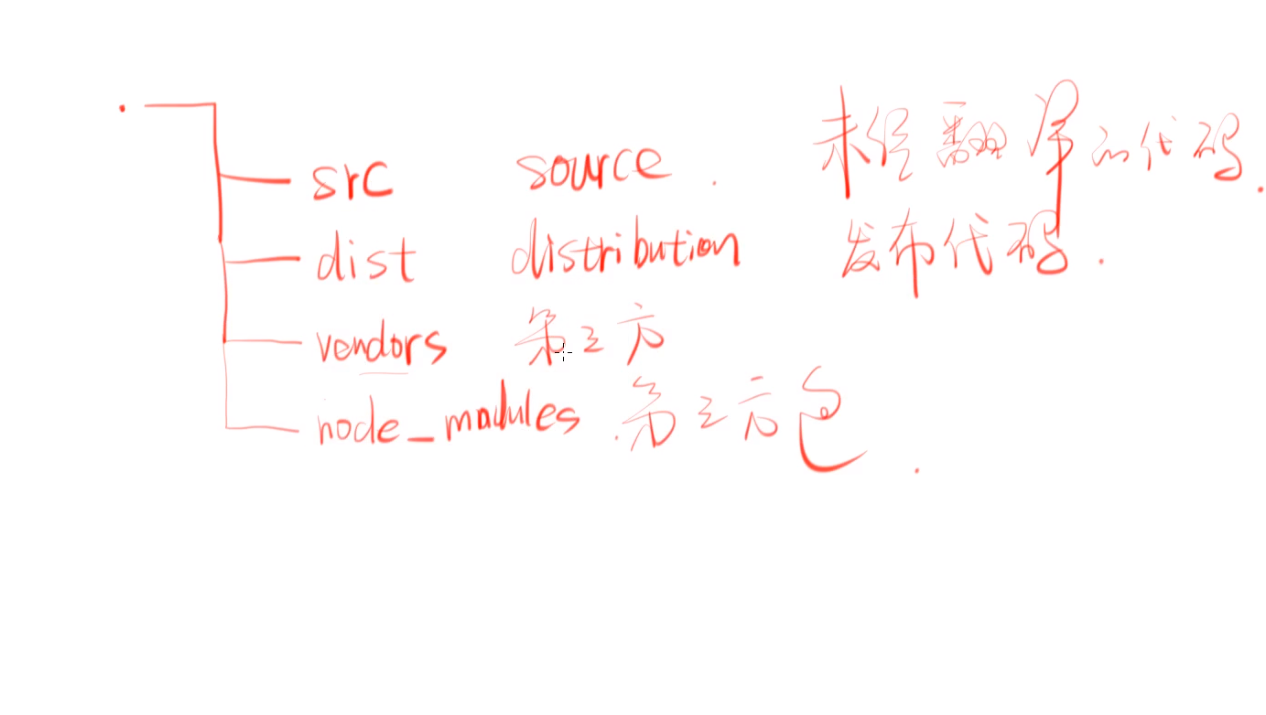 src source. 未经翻译的代码.
dist distribution 发布代码.
vendors 第三方
node_modules 第三方包.